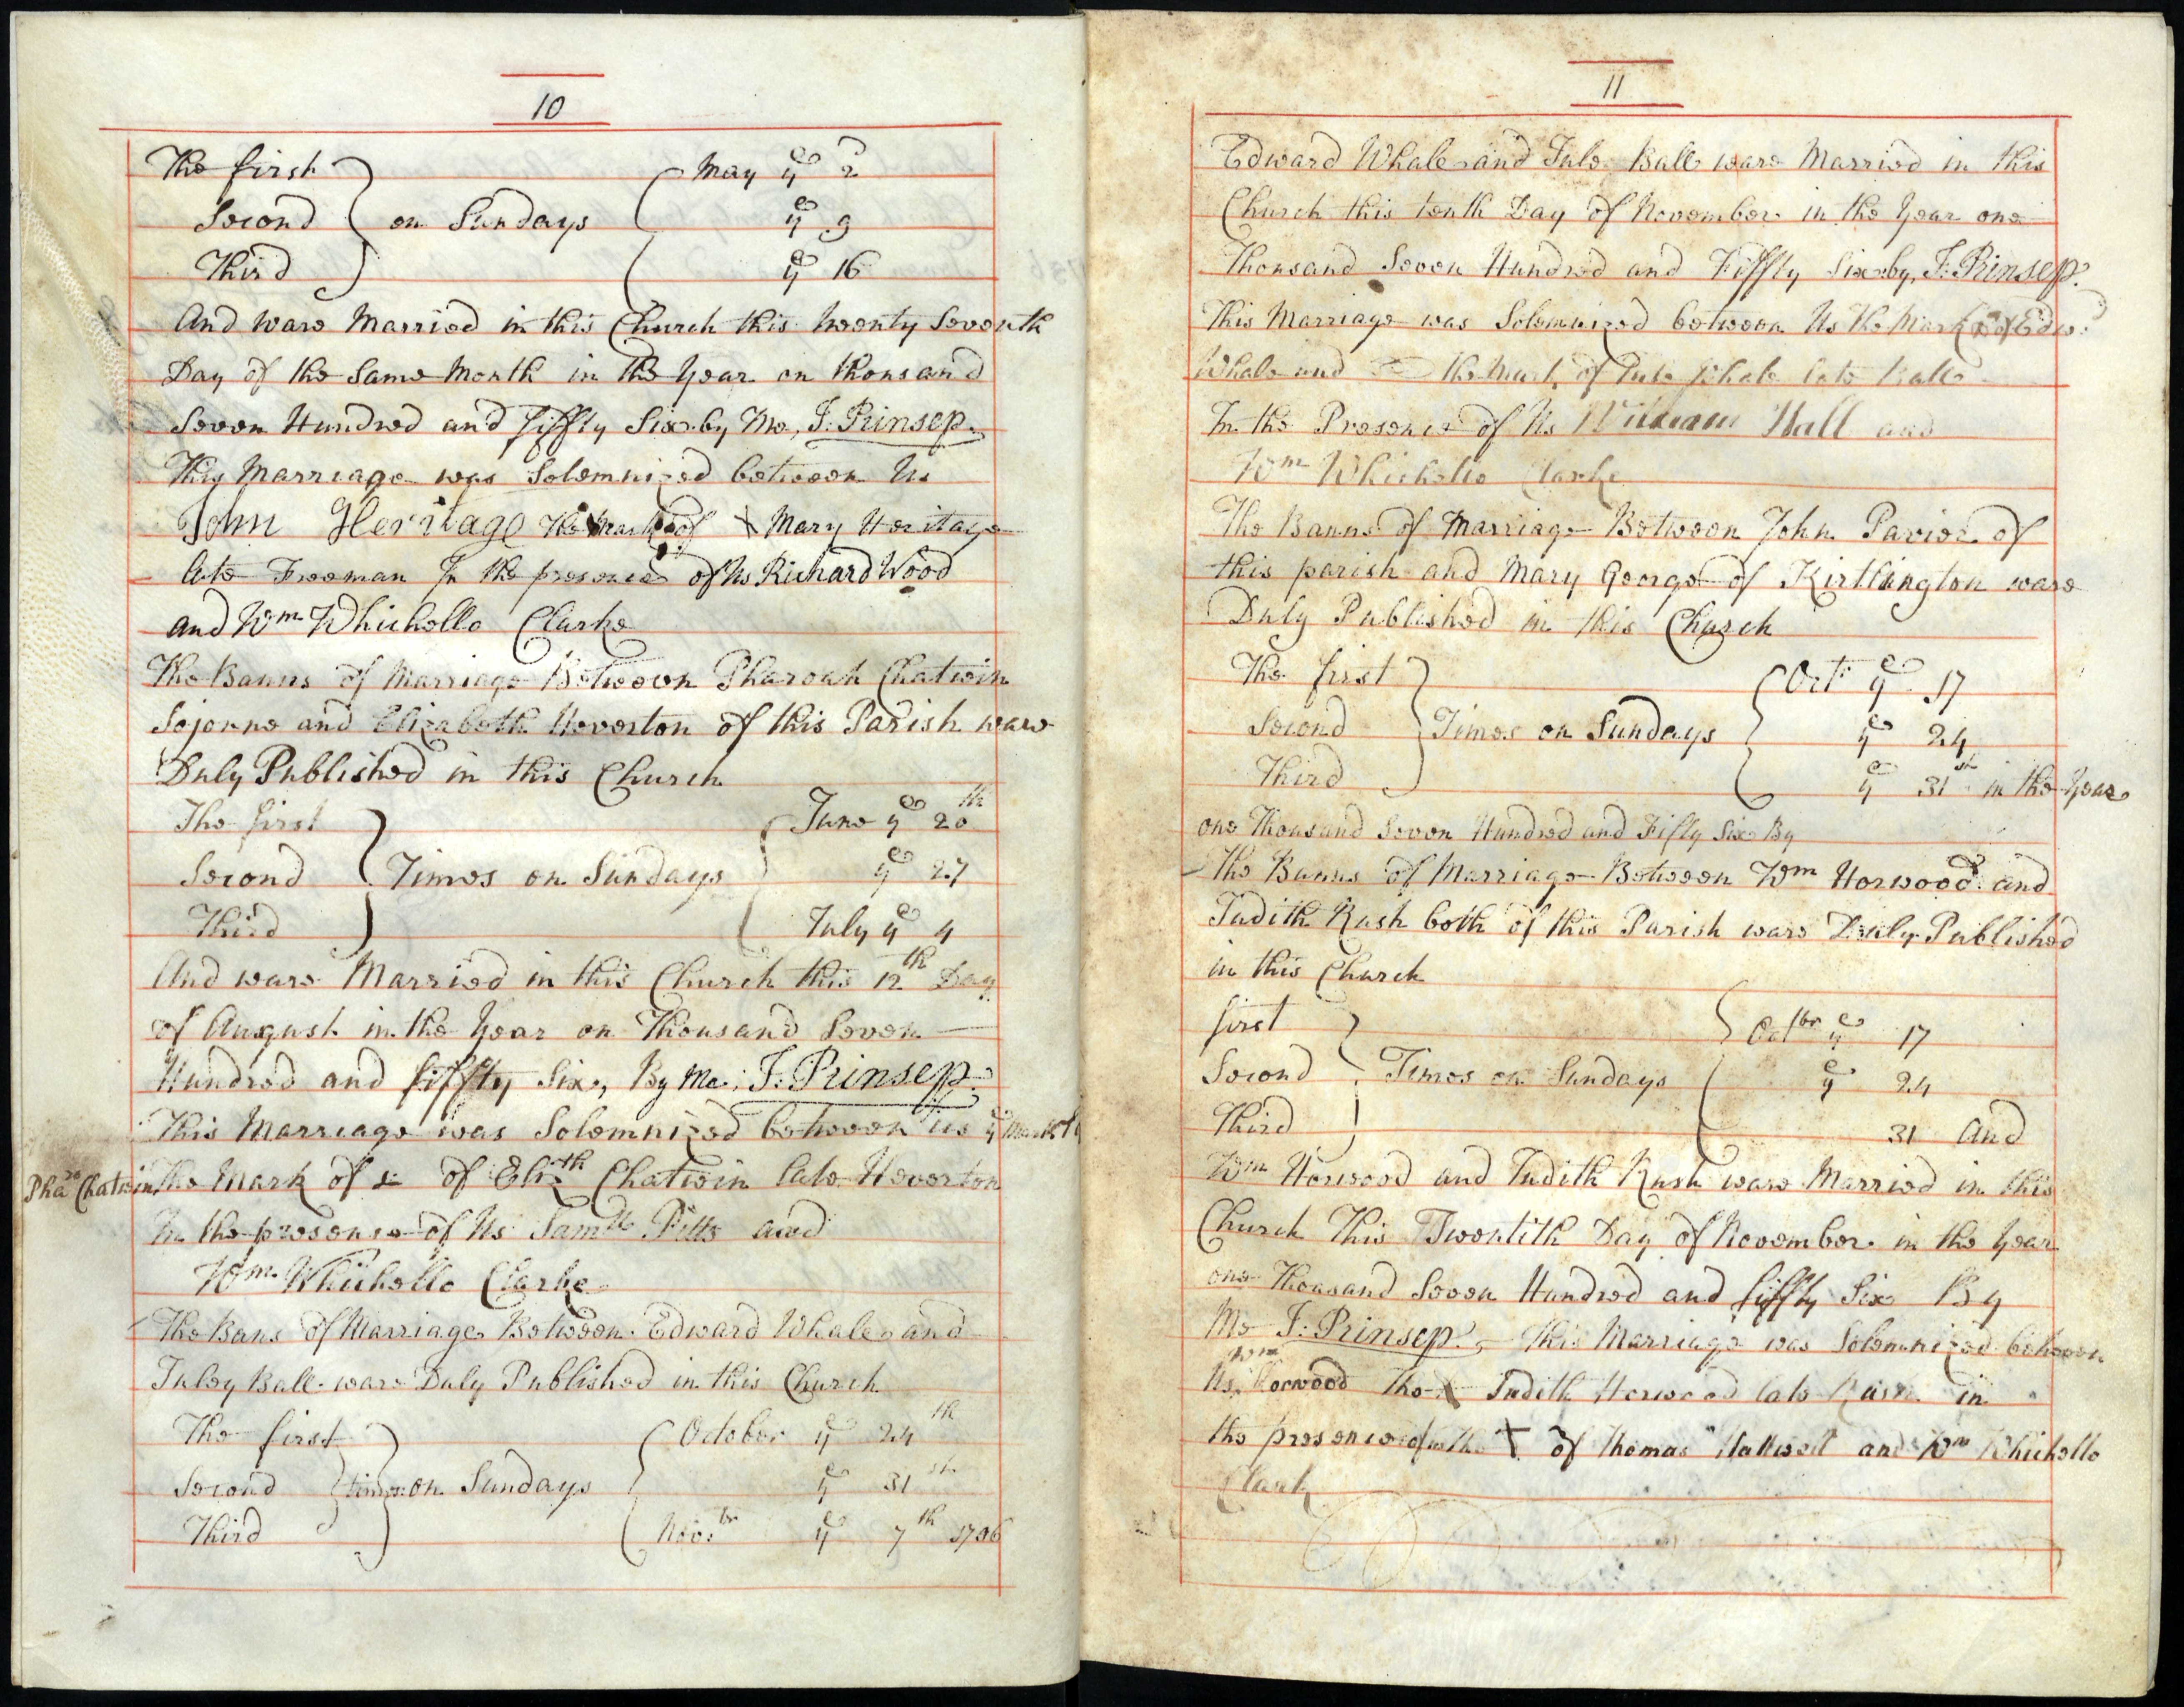 10
The first May yᵉ 2
Second on Sundays yᵉ 9
Third yᵉ 16
And ware Married in this Church this twenty Seventh
Day of the Same Month in the Year on thousand
Seven Hundred and fiffty Six by Me, J: Prinsep.
This Marriage was Solemnized between Us
John Heritage The Mark of X Mary Heritage
late Freeman In the presence of Us Richard Wood
and Wᵐ Whichello Clarke
The Banns of Marriage Between Pharoah Chatwin
Sojorne and Elizabeth Heverton of this Parish ware
Duly Published in this Church
The first June yᵉ 20ᵗʰ
Second Times on Sundays yᵉ 27
Third July yᵉ 4
And ware Married in this Church this 12ᵗʰ Day
of August in the Year on Thousand Seven
Hundred and fiffty Six, By Me; J: Prinsep
This Marriage was Solemnized between us yᵉ Mark of
Phaʳᵒ Chatwin The Mark of x of Elizᵗʰ Chatwin late Heverton
In the presence of Us Samˡˡ Pitts and
Wᵐ Whichello Clarke
The Bans of Marriage Between Edward Whale and
Juley Ball ware Duly Published in this Church
The first October yᵉ 24ᵗʰ
Second times on Sundays yᵉ 31ˢᵗ
Third Nov:ᵇʳ yᵉ 7ᵗʰ 1756
11
Edward Whale and Jule Ball ware Married in this
Church this tenth Day of November in the Year one
Thousand Seven Hundred and Fiffty Six by, J: Prinsep.
This Marriage was Solemnized between Us The Mark of Edwᵈ
Whale and The Mark of Jule Whale late Ball
In the Presence of Us William Hall and
Wᵐ Whichello Clarke
The Banns of Marriage Between John Pavier of
this parish and Mary George of Kirtlington ware
Duly Published in this Church
The first Octʳ yᵉ 17
Second Times on Sundays yᵉ 24
Third yᵉ 31ˢᵗ in the Year
one Thousand Seven Hundred and Fifty Six By
The Banns of Marriage Between Wᵐ Horwood and
Judith Rush both of this Parish ware Duly Published
in this Church
first Octᵇʳ yᵉ 17
Second Times on Sundays yᵉ 24
Third 31 And
Wᵐ Horwood and Judith Rush ware Married in this
Church This Twentith Day of November in the Year
one Thousand Seven Hundred and fiffty Six By
Me J: Prinsep. This Marriage was Solemnized between
Us Wᵐ Horwood The X Judith Horwood late Rush in
the presence of us the X of Thomas Hallwell and Wᵐ Whichello
Clark